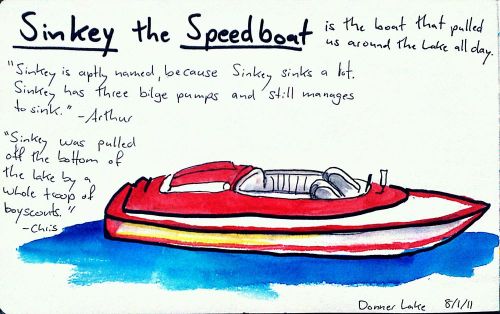 Sinkey the Speedboat is the boat that pulled
us around the Lake all day.
"Sinkey is aptly named, because Sinkey sinks a lot.
Sinkey has three bilge pumps and still manages
to sink." -Arthur
"Sinkey was pulled
off the bottom of
the lake by a
whole troop of
boyscouts."
-Chris
Donner Lake 8/1/11